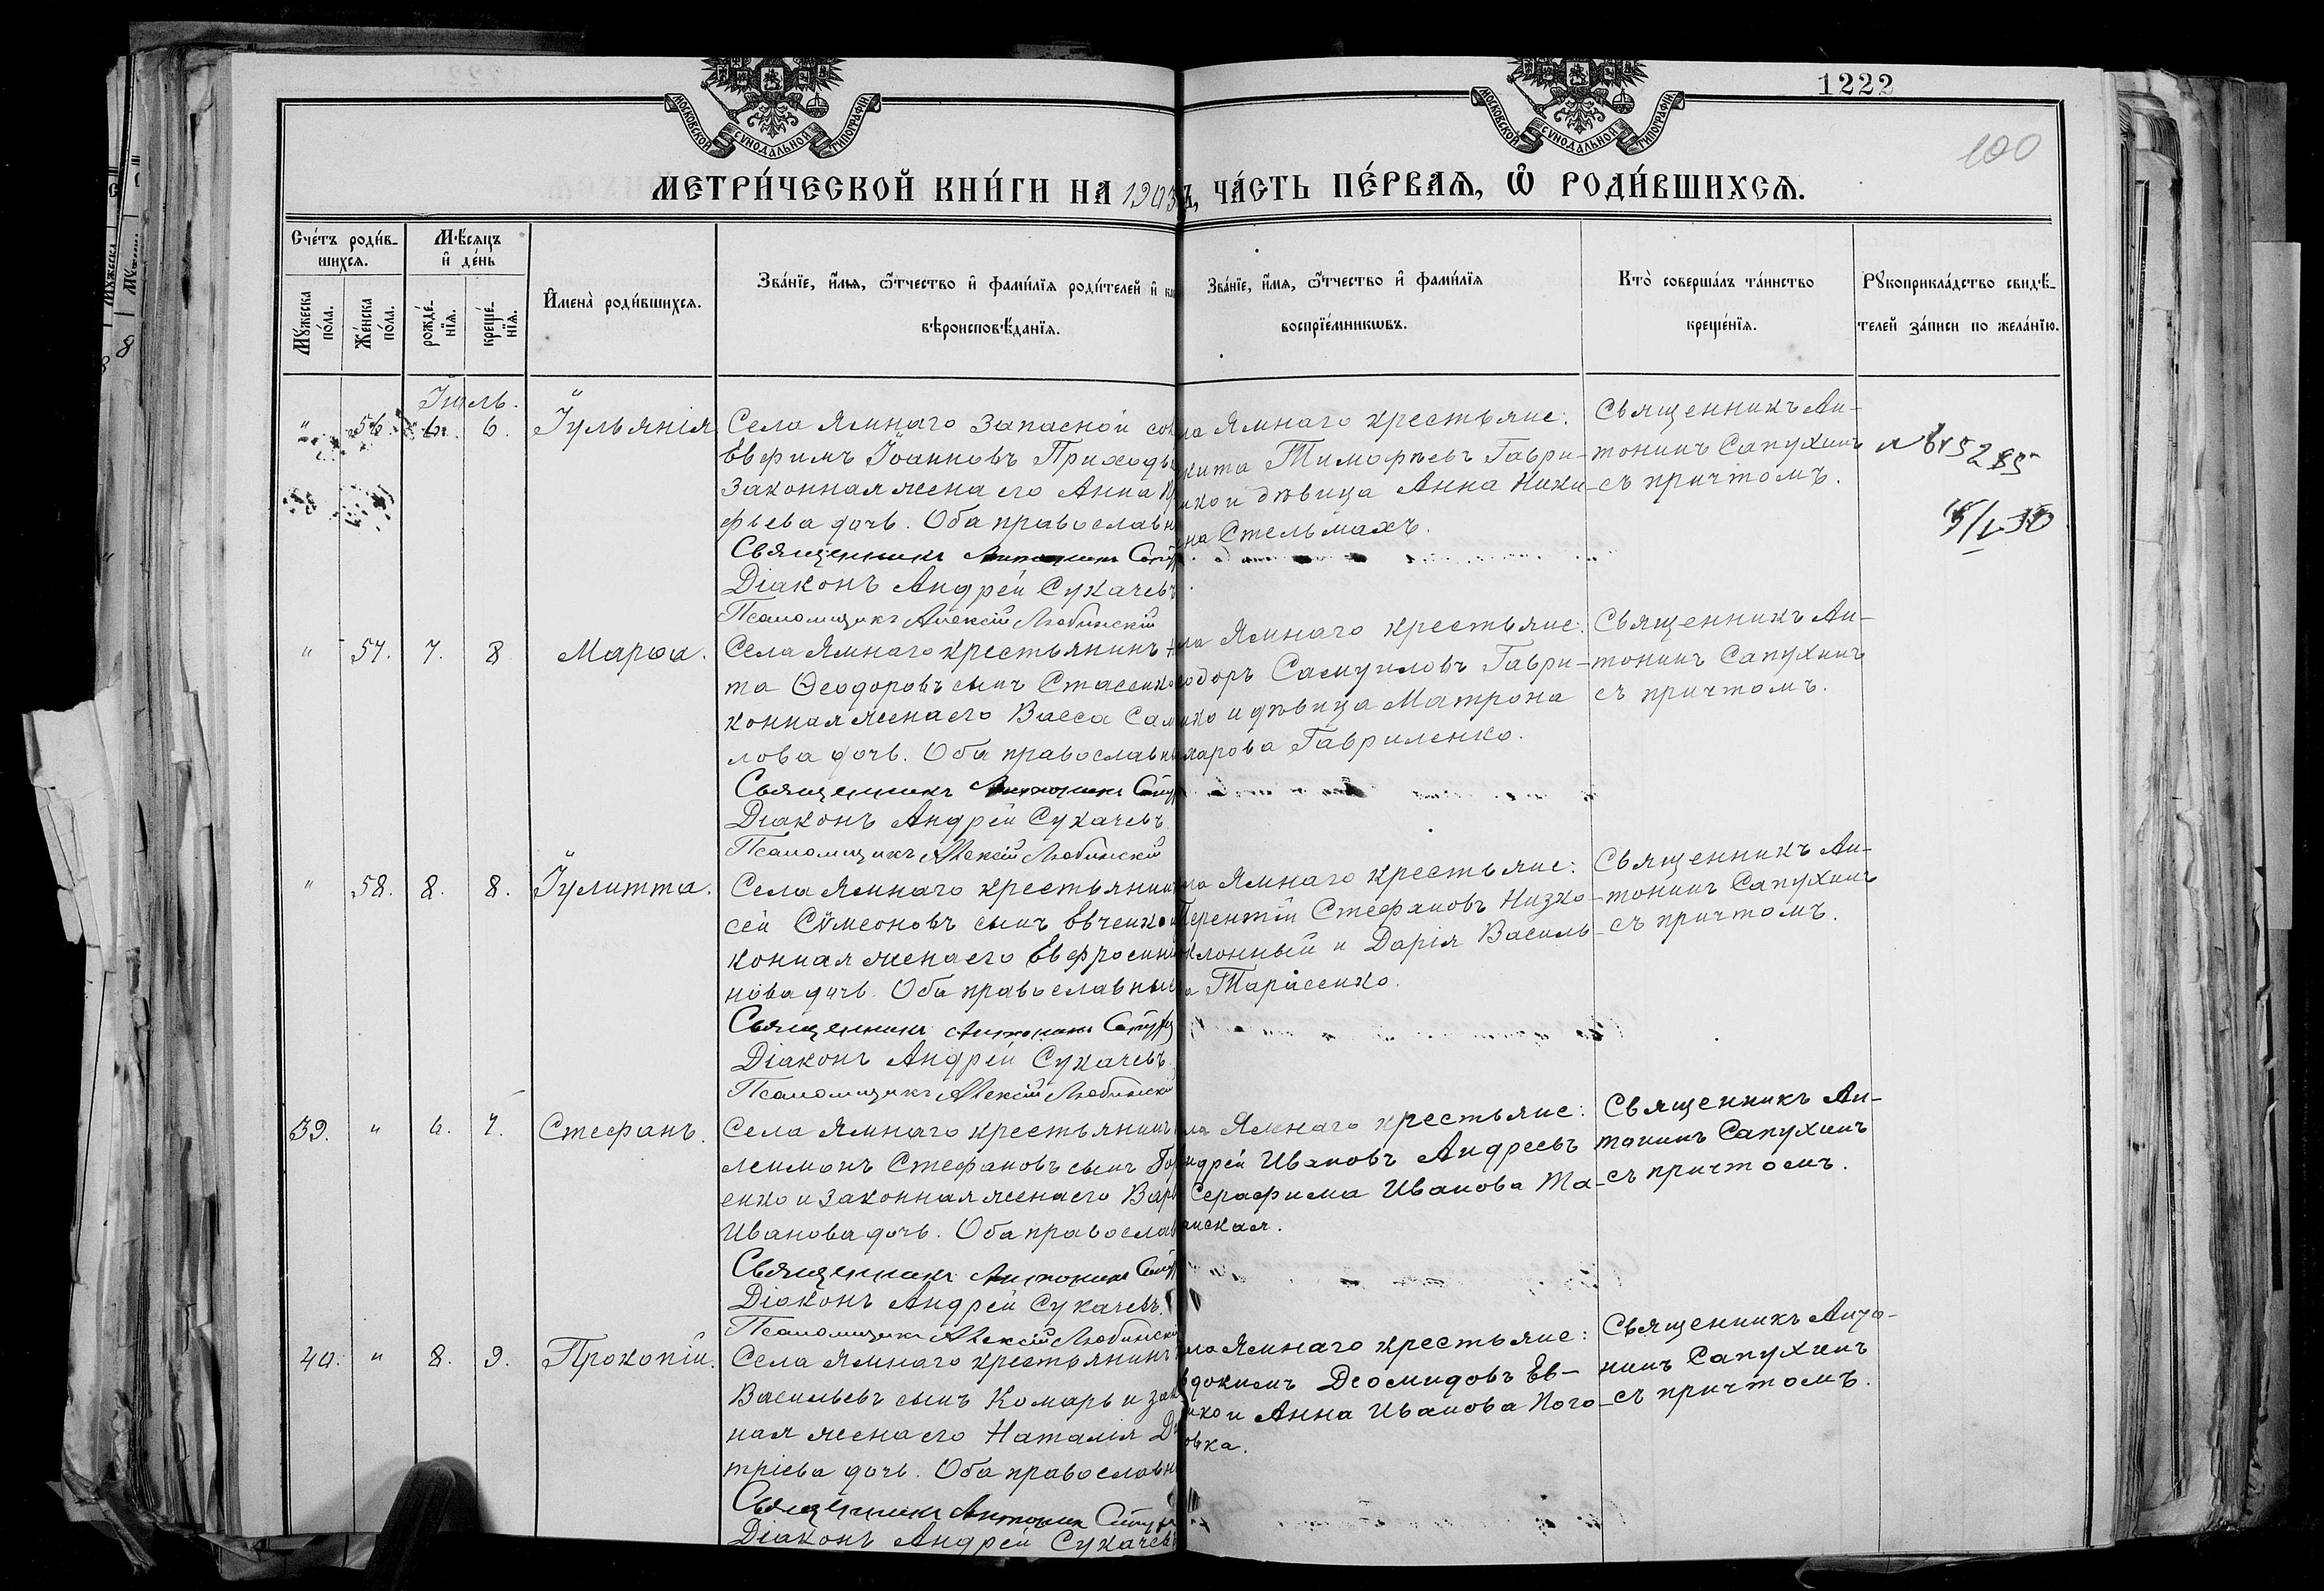 1222
100
МОСКОВСКОЙ СѴНОДАЛЬНОЙ ТИПОГРАФІИ
МОСКОВСКОЙ СѴНОДАЛЬНОЙ ТИПОГРАФІИ
МЕТРИ́ЧЕСКОЙ КНИ́ГИ НА 1903 Ъ, ЧА́СТЬ ПЕ́РВАѦ, Ѡ҃ РОДИ́ВШИХСѦ.
Сче́тъ роди́в-
шихсѧ.
Мꙋ́жеска по́ла.
Же́нска по́ла.
Мѣ́сѧцъ и҆ де́нь
рожде́-
нїѧ.
креще́-
нїѧ.
И҆мена̀ роди́вшихсѧ.
Зва́нїе, и҆́мѧ, ѻ҆́тчество и҆ фами́лїѧ роди́телей и҆
вѣроисповѣ́данїѧ.
Зва́нїе, и҆́мѧ, ѻ҆́тчество и҆ фами́лїѧ
воспрїе́мникѡвъ.
Кто̀ соверша́лъ та́инство
креще́нїѧ.
Рꙋкоприкла́дство свидѣ́-
телей за́писи по жела́нїю.
Іюль.
" 56. 6. 6. Іульянія
Села Ямнаго Запасной
Евфимъ Іоанновъ Приходь
Законная жена его Анна
фьева дочь. Оба православн
Священникъ Антонинъ Сапух
Діаконъ Андрей Сукачевъ
Псаломщикъ Алексій Любинскій
ла Ямнаго крестьяне:
кита Тимофѣевъ Гаври-
нко и дѣвица Анна Ники-
на Стельмахъ.
Священникъ Ан-
тонинъ Сапухинъ
съ причтомъ.
" 57. 7. 8 Марѳа.
Села Ямнаго крестьянинъ
та Ѳеодоровъ сынъ Стасенко
конная жена его Васса Сам
лова дочь. Оба православны
Священникъ Антонинъ Сапух
Діаконъ Андрей Сукачевъ
Псаломщикъ Алексій Любинскій
ла Ямнаго крестьяне:
одоръ Самуиловъ Гаври-
нко и дѣвица Матрона
харова Гавриленко.
Священникъ Ан-
тонинъ Сапухинъ
съ причтомъ.
" 58. 8. 8. Іулитта.
Села Ямнаго крестьянин
сей Сѵмеоновъ сынъ Евченко
конная жена его Евфросин
нова дочь. Оба православные
Священникъ Антонинъ Сапух
Діаконъ Андрей Сукачевъ
Псаломщикъ Алексій Любинскій
ла Ямнаго крестьяне:
Терентій Стефановъ Низко-
клонный и Дарія Василь-
а Тарасенко.
Священникъ Ан-
тонинъ Сапухинъ
съ причтомъ.
39. " 6. 7. Стефанъ.
Села Ямнаго крестьянинъ
леимонъ Стефановъ сынъ Гор
енко и законная жена его Варв
Иванова дочь. Оба православ
Священникъ Антонинъ Сапух
Діаконъ Андрей Сукачевъ.
Псаломщикъ Алексій Любинскій
ла Ямнаго крестьяне:
ндрей Ивановъ Андреевъ
Серафима Иванова Та-
анская.
Священникъ Ан-
тонинъ Сапухинъ
съ причтомъ.
40. " 8. 9. Прокопій.
Села Ямнаго крестьянинъ
Васильевъ сынъ Комаръ и зак
ная жена его Наталія Ди
тріева дочь. Оба православн
Священникъ Антонинъ Сапух
Діаконъ Андрей Сукачевъ
ла Ямнаго крестьяне:
вдокимъ Деомидовъ Ев-
нко и Анна Иванова Пого-
овка.
Священникъ Анто-
нинъ Сапухинъ
съ причтомъ.